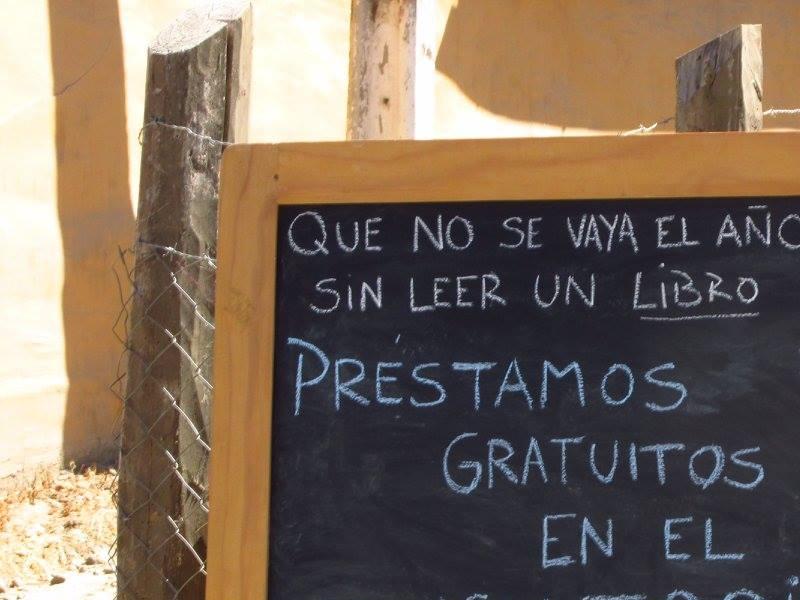 QUE NO SE VAYA EL AÑO
SIN LEER UN LIBRO
PRÉSTAMOS
GRATUITOS
EN EL